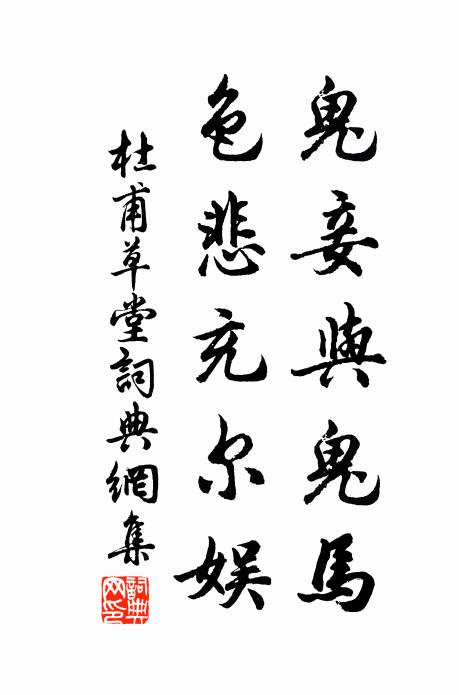 鬼妾與鬼馬
色悲充尔娱
杜甫草堂詞典網集
詞典网印